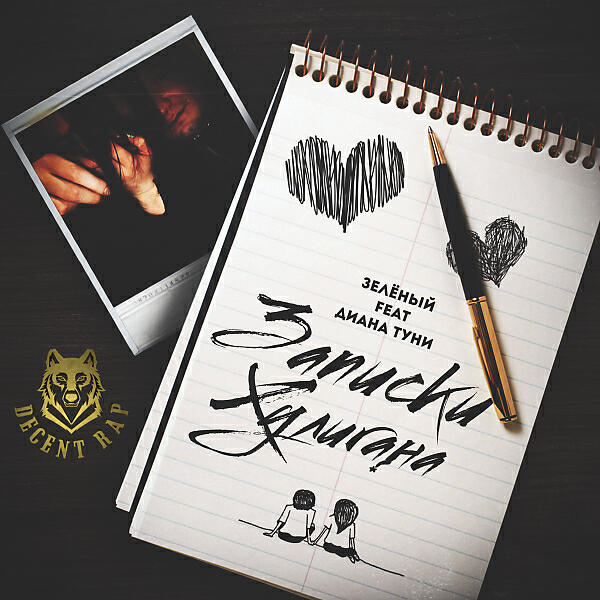 ЗЕЛЁНЫЙ
FEAT
ДИАНА ТУНИ
Записки
Хулигана
DECENT RAP